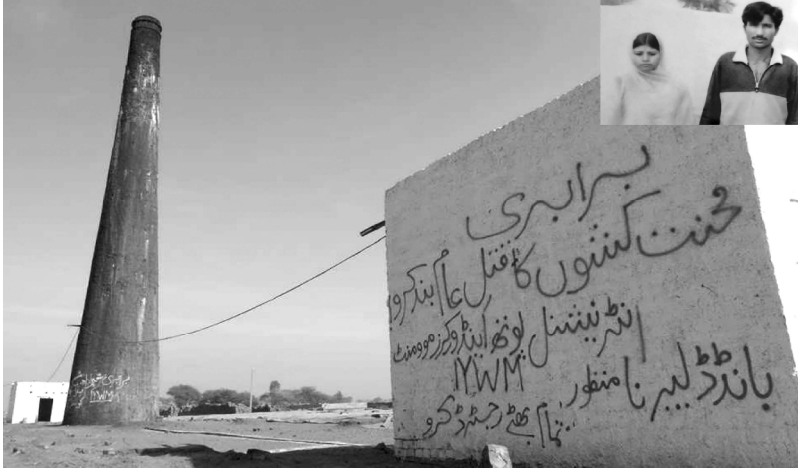 برابری
محنت کشوں کا قتل عام بند کرو
انٹرنیشنل یوتھ اینڈ ورکرز موومنٹ
MWM
بانڈڈ لیبر نا منظور
تمام بھٹے رجسٹرڈ کرو
MWM